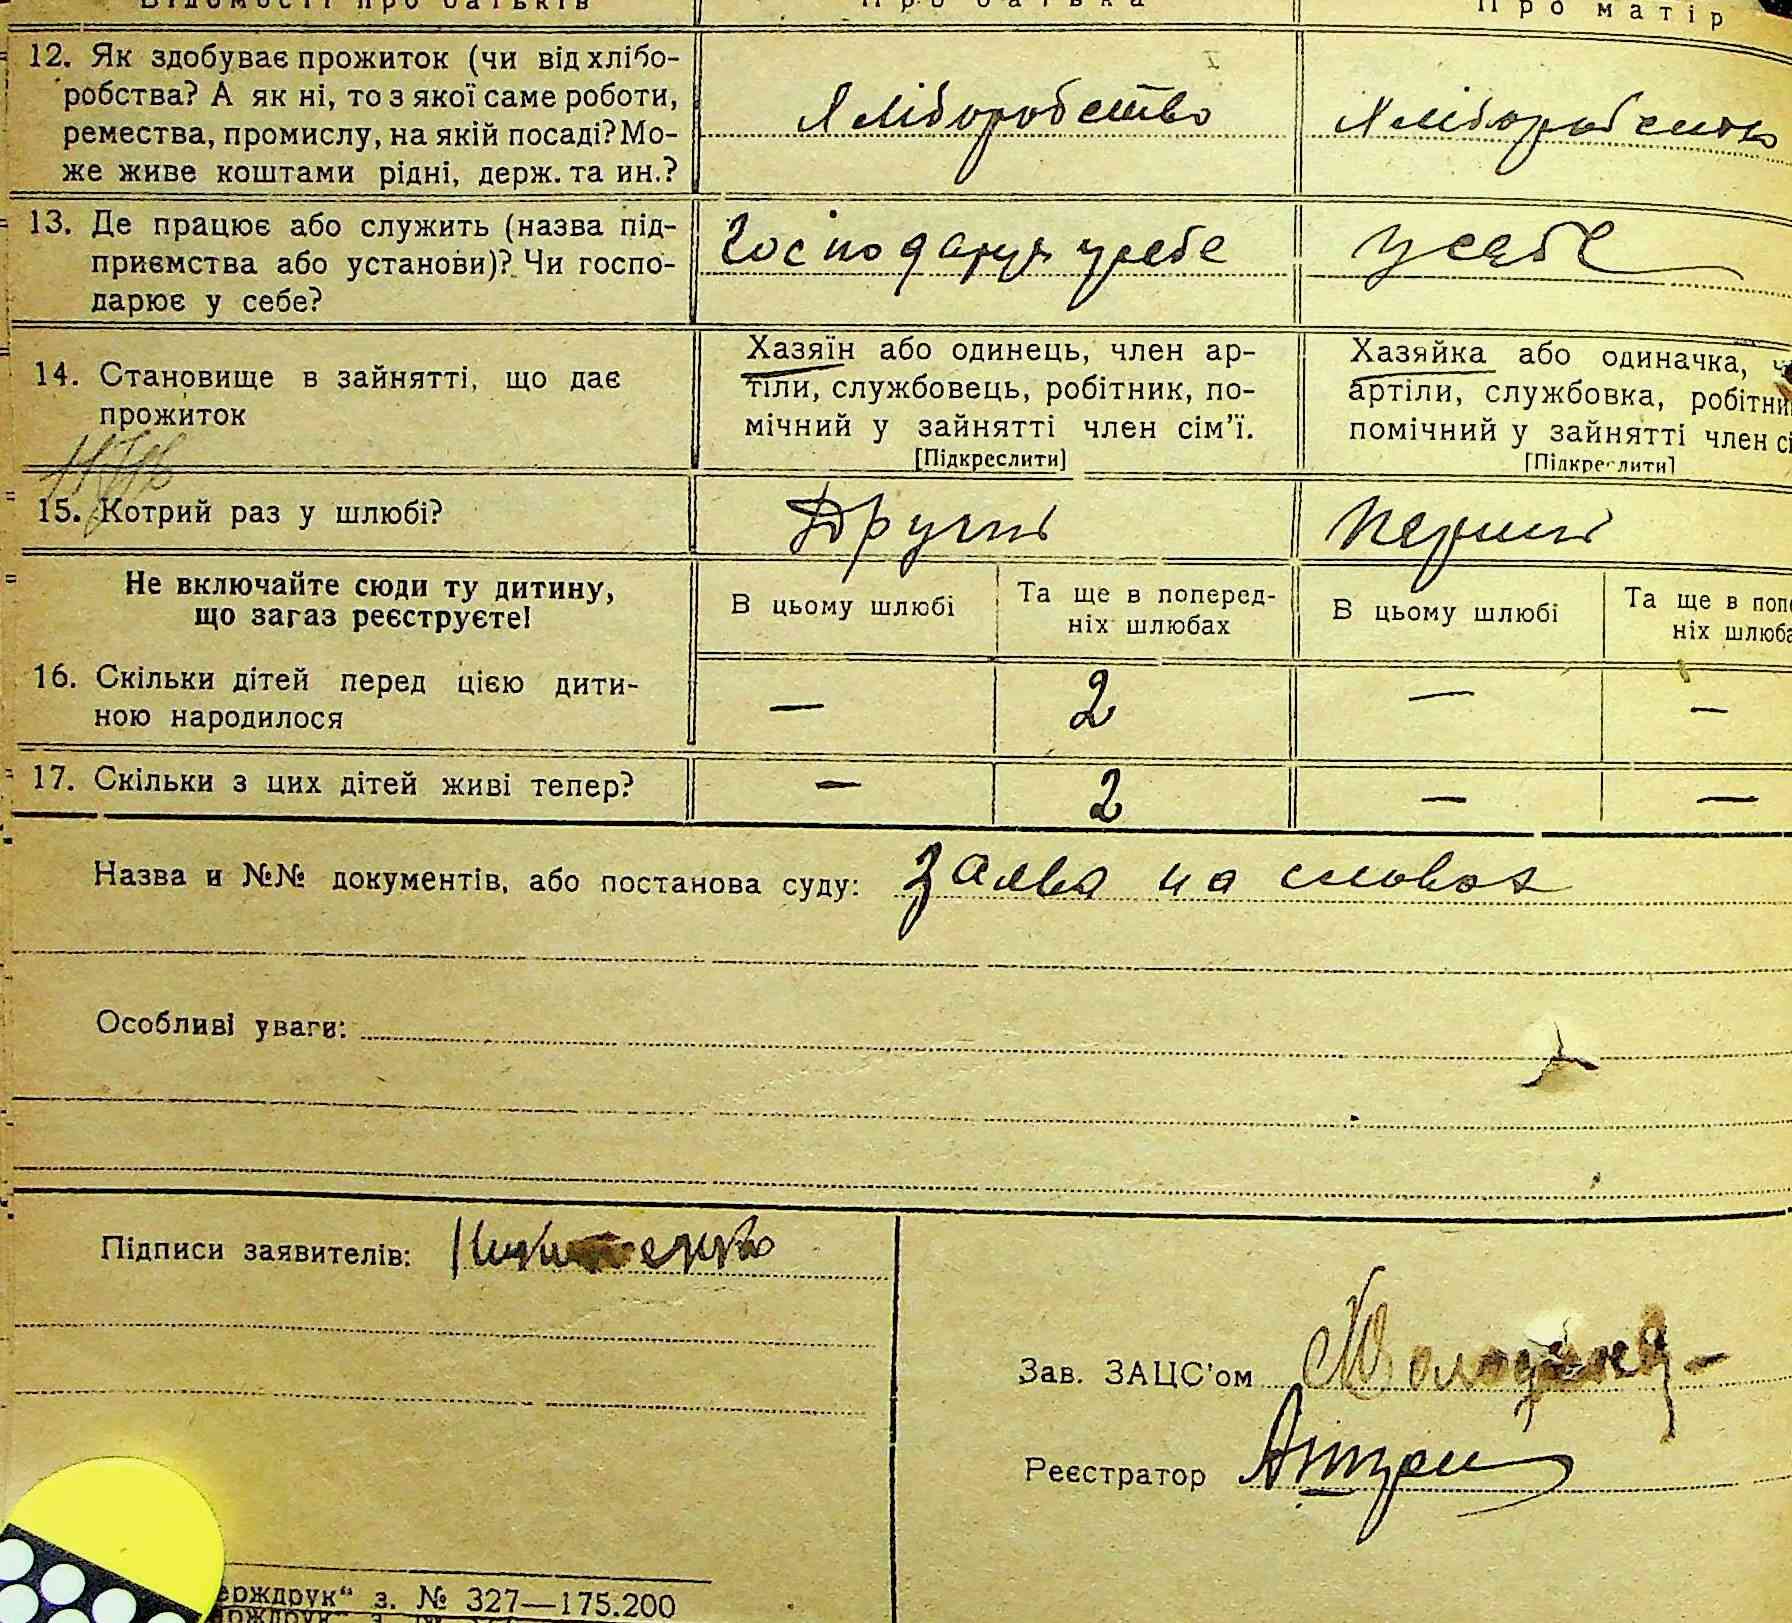 Відомості про батьків Про батька Про матір
12. Як здобуває прожиток (чи від хлібо-
робства? А як ні, то з якої саме роботи,
ремества, промислу, на якій посаді? Мо-
же живе коштами рідні, держ. та ин.?
Хліборобство Хліборобство
13. Де працює або служить (назва під-
приємства або установи)? Чи госпо-
дарює у себе?
Господарує у себе у себе
14. Становище в зайнятті, що дає
прожиток
Хазяїн або одинець, член ар-
тіли, службовець, робітник, по-
мічний у зайнятті член сім'ї.
[Підкреслити]
Хазяйка або одиначка,
артіли, службовка,
помічний у зайнятті член
[Підкреслити]
15. Котрий раз у шлюбі? Другий Перший
Не включайте сюди ту дитину,
що загаз реєструєте!
В цьому шлюбі
Та ще в поперед-
ніх шлюбах
В цьому шлюбі
Та ще в
ніх
16. Скільки дітей перед цією дити-
ною народилося
— 2 — —
17. Скільки з цих дітей живі тепер? — 2 — —
Назва и №№ документів, або постанова суду: Заява на словах
Особливі уваги:
Підписи заявителів:
Зав. ЗАЦС'ом
Реєстратор
з. № 327—175.200